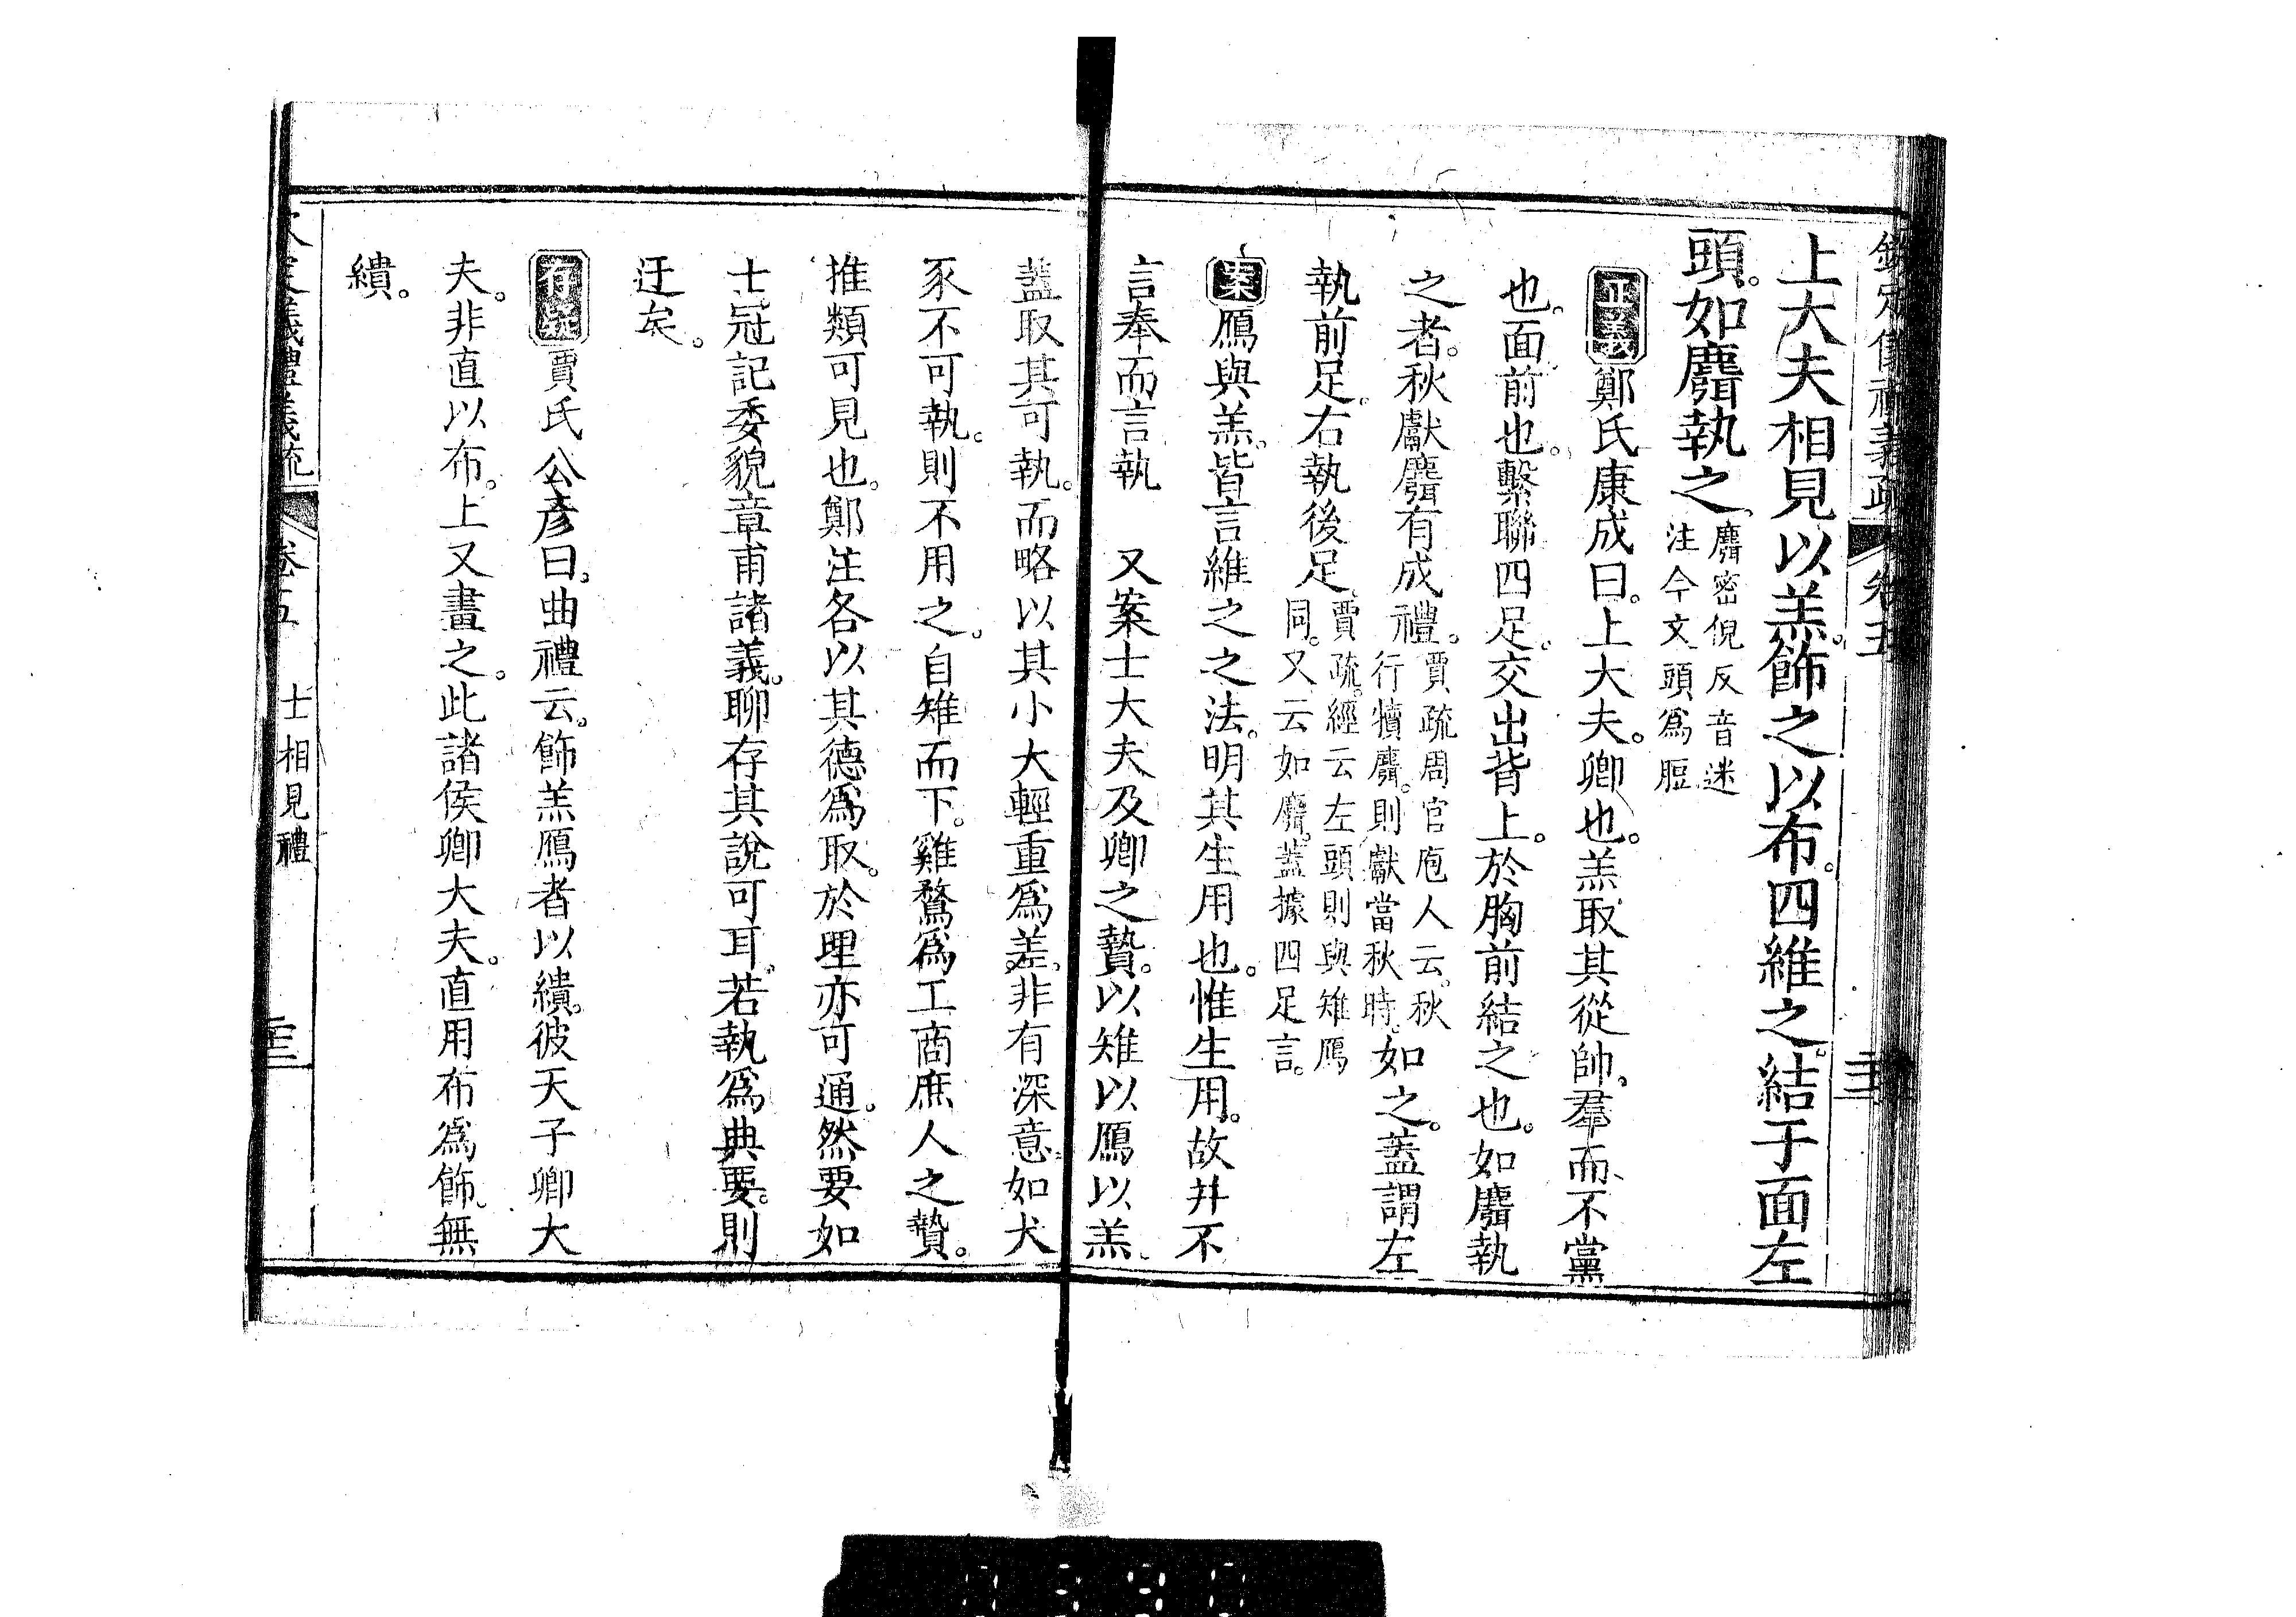 上大夫相見以羔。飾之以布。四維之。結于面左
頭。如麛執之。麛密倪反音迷
注今文頭爲脰
正義鄭氏康成曰。上大夫。卿也。羔取其從帥。羣而不黨
也。面。前也。繫聯四足。交出背上。於胸前結之也。如麛執
之者。秋獻麛有成禮。賈疏周官庖人云。秋
行犢麛。則獻當秋時。如之。蓋謂左
執前足。右執後足。賈疏。經云左頭則與雉鴈
同。又云如麛。蓋據四足言。
案鴈與羔。皆言維之之法。明其生用也。惟生用。故幷不
言奉而言執 又案士大夫及卿之贄。以雉以鴈以羔。
蓋取其可執。而略以其小大輕重爲差。非有深意。如犬
豕不可執。則不用之。自雉而下。雞鶩爲工商庶人之贄。
推類可見也。鄭注各以其德爲取。於理亦可通。然要如
士冠記委貌章甫諸義。聊存其說可耳。若執爲典要。則
迂矣。
存疑賈氏公彥曰。曲禮云。飾羔鴈者以繢。彼天子卿大
夫。非直以布。上又畫之。此諸侯卿大夫。直用布爲飾。無
繢。
義禮義疏 卷五 士相見禮